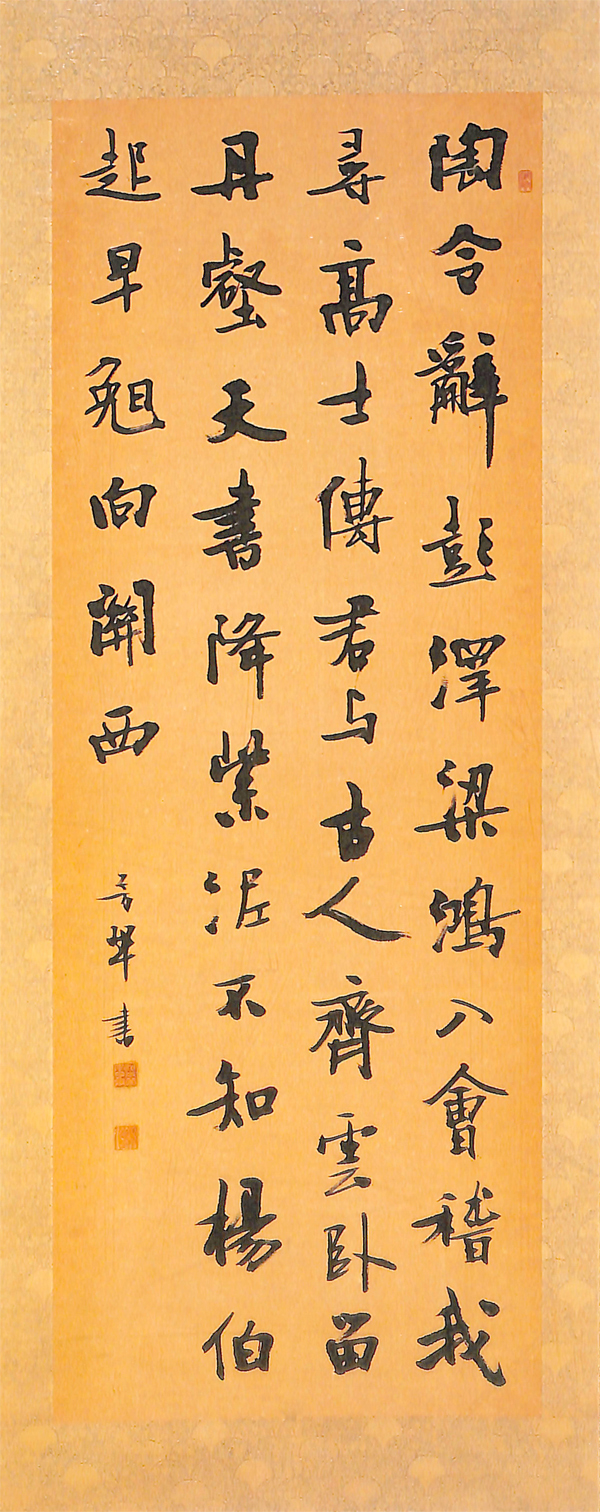 陶令辭彭澤梁鴻入會稽我
尋高士傳君与古人齊雲臥留
丹壑天書降紫泥不知楊伯
起早晚向關西
書